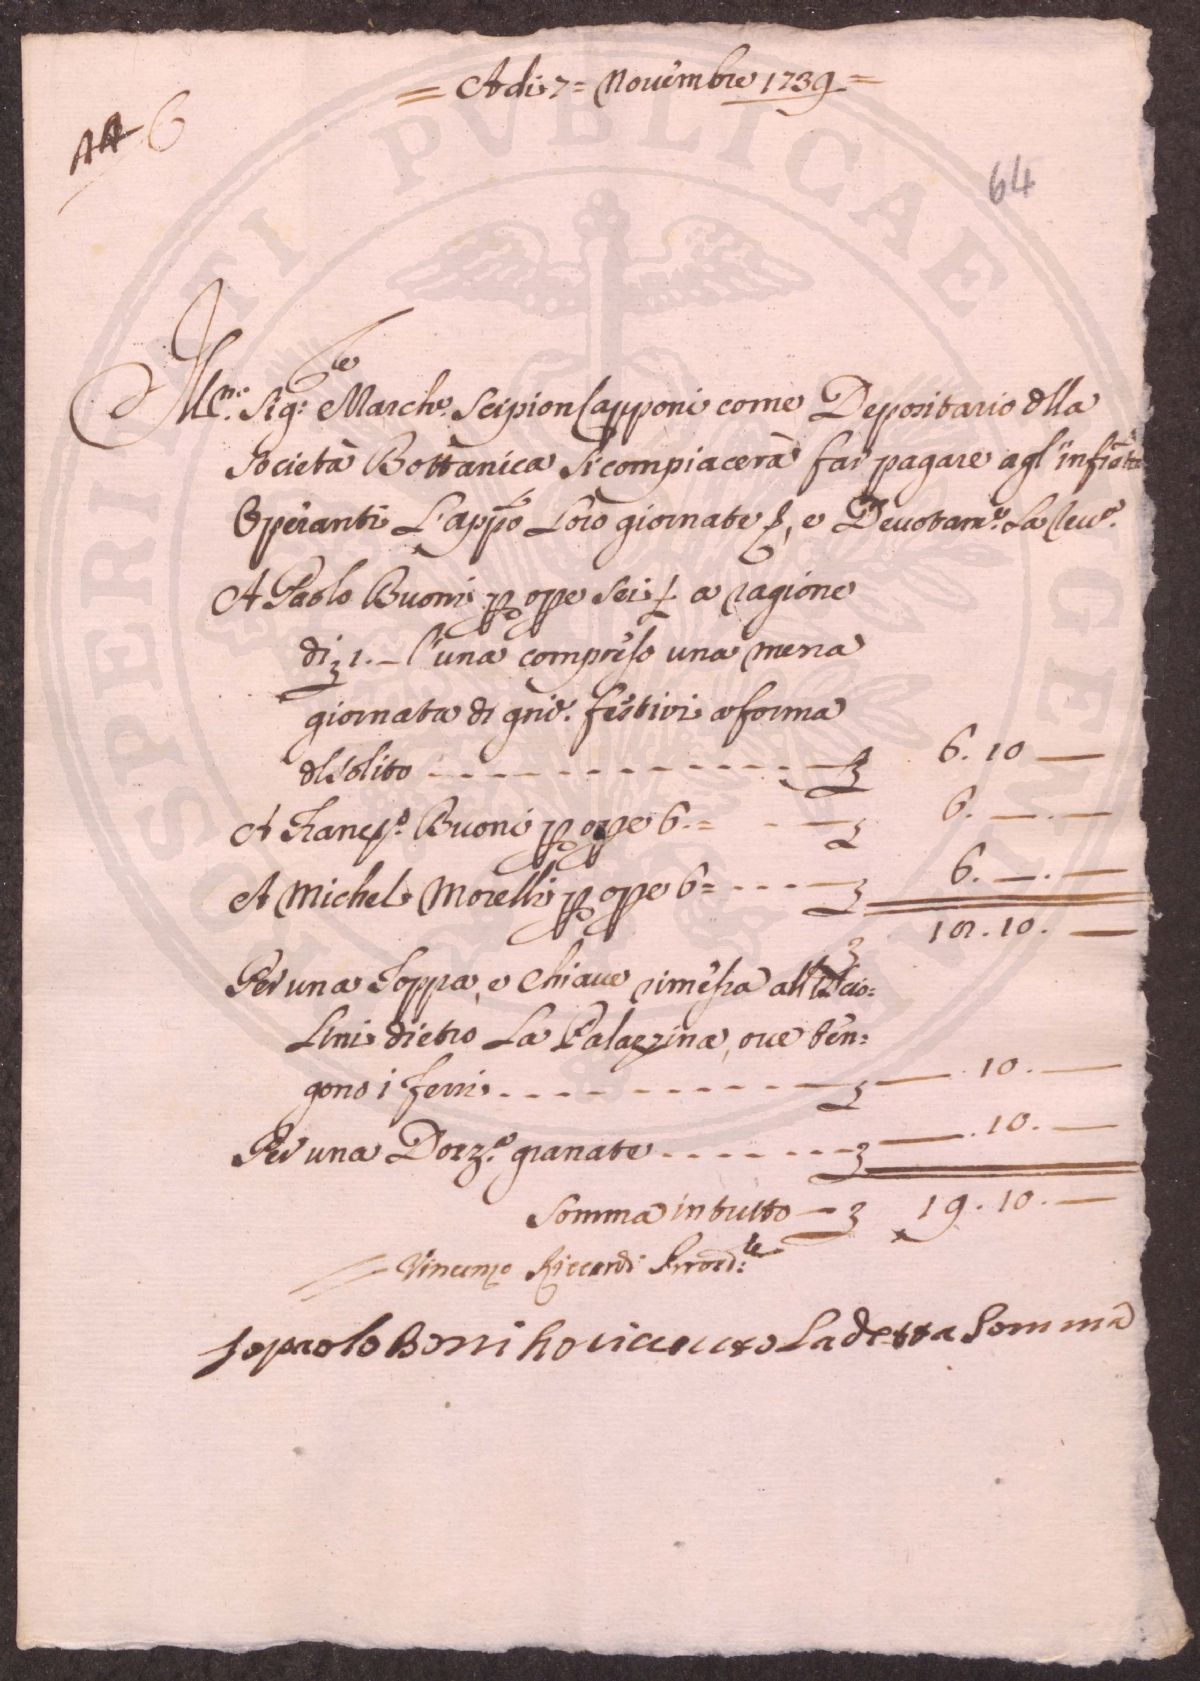 = Adi 7 = Novembre 1739 =
AA 6
64
Ill.mo Sig.re March.e Scipion Capponi come Depositario dlla
Società Bottanica si compiacerà far pagare agl' infra.tti
Operanti L'app.o Loro giornate, e Devotam.e La river.
A Paolo Buoni p ope Sei a ragione
di 1. — l'una compreso una meza
giornata di gni. festivi a forma
dl Solito 6. 10 —
A Franc.o Buoni p ope 6. = 6. — . —
A Michel Morelli p ope 6 = 6. — . —
18. 10. —
Per una Toppa, e Chiave rimessa all' Uscio=
Lino dietro La Palazzina, ove ten=
gono i ferri — . 10. —
Per una Dozz.a granate — . 10. —
Somma in tutto — 19. 10. —
Vincenzo Riccardi Provd.re
Io paolo Boni ho riceuto La detta Somma
NON SPERIMENTI PVBLICAE